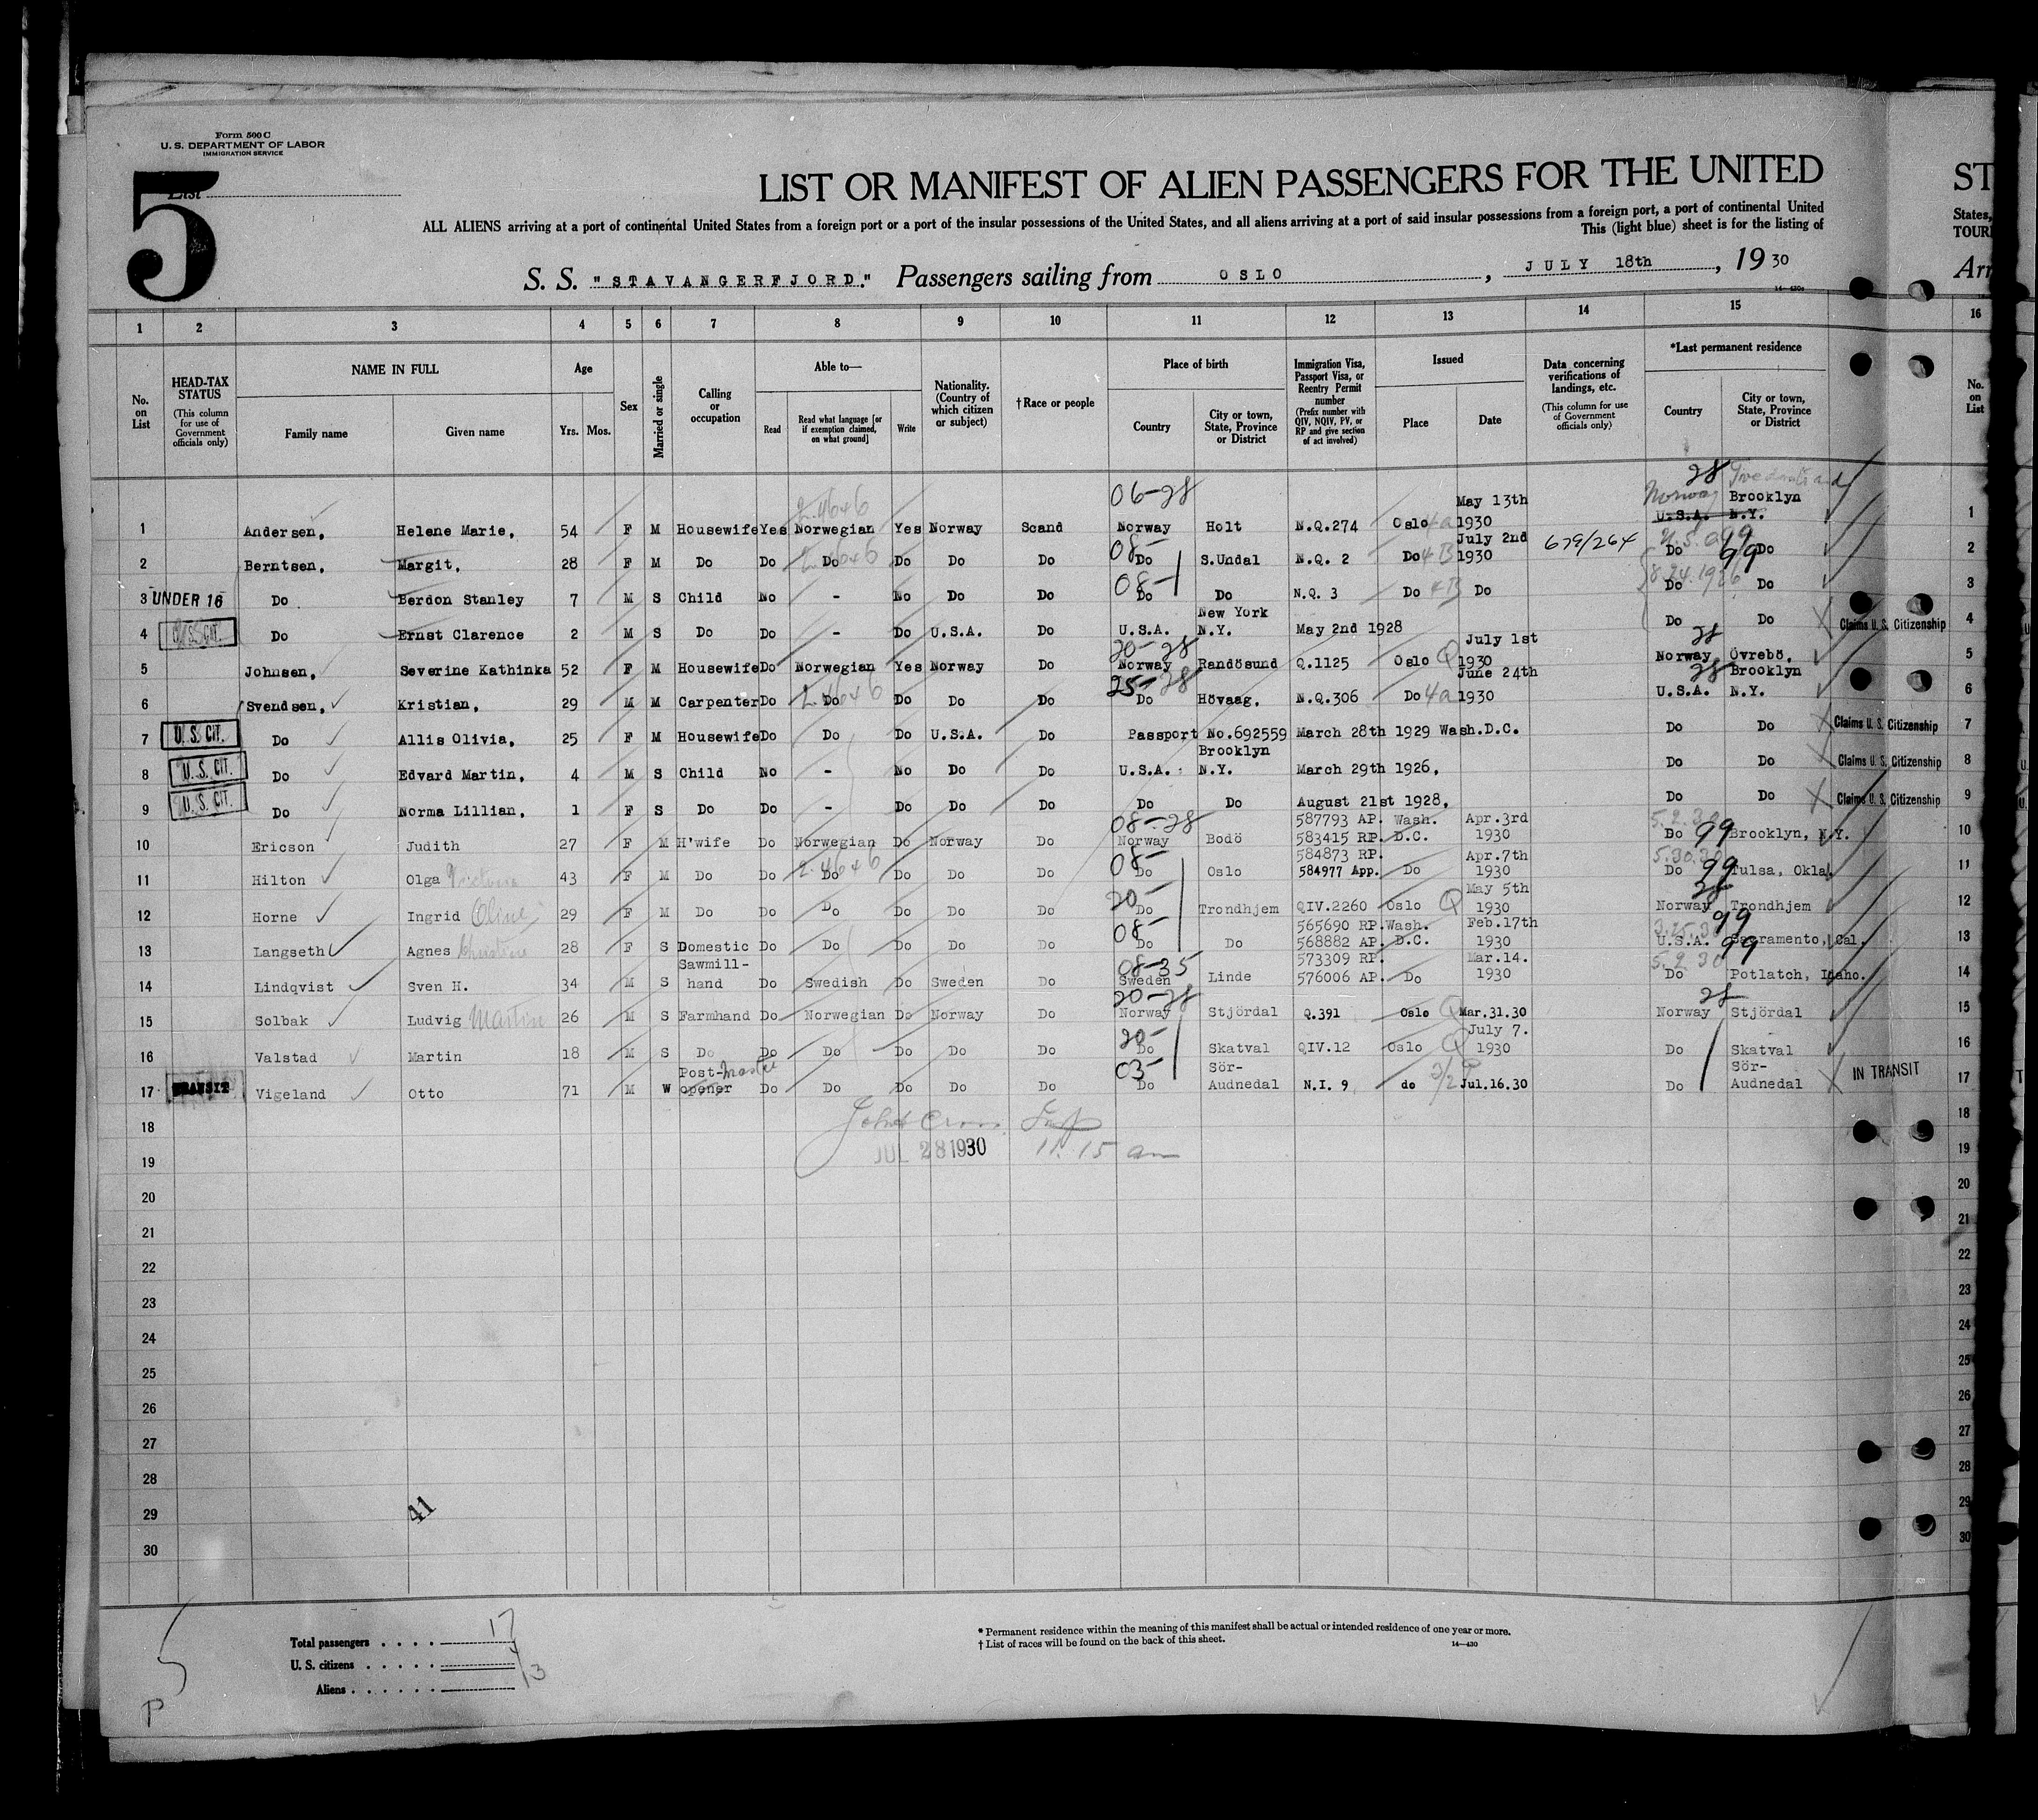 Form 500 C
U. S. DEPARTMENT OF LABOR
IMMIGRATION SERVICE
5
List
LIST OR MANIFEST OF ALIEN PASSENGERS FOR THE UNITED
ST
ALL ALIENS arriving at a port of continental United States from a foreign port or a port of the insular possessions of the United States, and all aliens arriving at a port of said insular possessions from a foreign port, a port of continental United
States,
This (light blue) sheet is for the listing of
TOUR
S. S. "STAVANGERFJORD." Passengers sailing from OSLO, JULY 18th, 1930
Arr
1 2 3 4 5 6 7 8 9 10 11 12 13 14 15 16
No. on List
HEAD-TAX STATUS (This column for use of Government officials only)
NAME IN FULL Family name Given name
Age Yrs. Mos.
Sex
Married or single
Calling or occupation
Able to— Read Read what language [or if exemption claimed, on what ground] Write
Nationality. (Country of which citizen or subject)
†Race or people
Place of birth Country City or town, State, Province or District
Immigration Visa, Passport Visa, or Reentry Permit number (Prefix number with QIV, NQIV, PV, or RP and give section of act involved)
Issued Place Date
Data concerning verifications of landings, etc. (This column for use of Government officials only)
*Last permanent residence Country City or town, State, Province or District
No. on List
1 Andersen, Helene Marie, 54 F M Housewife Yes Norwegian Yes Norway Scand 06-28 Norway Holt N.Q.274 Oslo 4a May 13th 1930 28 Norway Brooklyn U.S.A. N.Y. 1
2 Berntsen, Margit, 28 F M Do Do Do Do Do Do 08- Do S.Undal N.Q. 2 Do 4B July 2nd 1930 679/264 U.S.A. 99 Do Do 2
3 UNDER 16 Do Berdon Stanley 7 M S Child No - No Do Do 08- Do Do N.Q. 3 Do 4B Do 8.24.1926 99 Do Do 3
4 U.S. CIT. Do Ernst Clarence 2 M S Do Do - Do U.S.A. Do U.S.A. New York N.Y. May 2nd 1928 Do Do Claims U.S. Citizenship 4
5 Johnsen, Severine Kathinka 52 F M Housewife Do Norwegian Yes Norway Do 20-28 Norway Randösund Q.1125 Oslo Q July 1st 1930 28 Norway Övrebö, 5
6 Svendsen, Kristian, 29 M M Carpenter Do Do Do Do Do 25-28 Do Hövaag, N.Q.306 Do 4a June 24th 1930 28 U.S.A. Brooklyn N.Y. 6
7 U.S. CIT. Do Allis Olivia, 25 F M Housewife Do Do Do U.S.A. Do Passport No.692559 March 28th 1929 Wash.D.C. Do Do Claims U.S. Citizenship 7
8 U.S. CIT. Do Edvard Martin, 4 M S Child No - No Do Do U.S.A. Brooklyn N.Y. March 29th 1926, Do Do Claims U.S. Citizenship 8
9 U.S. CIT. Do Norma Lillian, 1 F S Do Do - Do Do Do Do Do August 21st 1928, Do Do Claims U.S. Citizenship 9
10 Ericson Judith 27 F M H'wife Do Norwegian Do Norway Do 08-28 Norway Bodö 587793 AP. 583415 RP. Wash. D.C. Apr.3rd 1930 5.2.30 Do 99 Brooklyn, N.Y. 10
11 Hilton Olga 43 F M Do Do Do Do Do Do 08- Do Oslo 584873 RP. 584977 App. Do Apr.7th 1930 5.30.30 Do 99 Tulsa, Okla. 11
12 Horne Ingrid Oline 29 F M Do Do Do Do Do Do 20- Do Trondhjem QIV.2260 Oslo Q May 5th 1930 28 Norway Trondhjem 12
13 Langseth Agnes Christine 28 F S Domestic Do Do Do Do Do 08- Do Do 565690 RP. 568882 AP. Wash. D.C. Feb.17th 1930 99 U.S.A. Sacramento, Cal. 13
14 Lindqvist Sven H. 34 M S Sawmill- hand Do Swedish Do Sweden Do 08-35 Sweden Linde 573309 RP. 576006 AP. Do Mar.14. 1930 5.2.30 99 Do Potlatch, Idaho. 14
15 Solbak Ludvig Martin 26 M S Farmhand Do Norwegian Do Norway Do 20-28 Norway Stjördal Q.391 Oslo Q Mar.31.30 28 Norway Stjördal 15
16 Valstad Martin 18 M S Do Do Do Do Do Do 20- Do Skatval QIV.12 Oslo Q July 7. 1930 Do Skatval 16
17 TRANSIT Vigeland Otto 71 M W Post-master opener Do Do Do Do Do 03- Do Sör- Audnedal N.I. 9 do 3/2 Jul.16.30 Do Sör- Audnedal IN TRANSIT 17
18 18
19 JUL 28 1930 11.15 am 19
20 20
21 21
22 22
23 23
24 24
25 25
26 26
27 27
28 28
29 41 29
30 30
Total passengers 17
U. S. citizens 4
Aliens 13
* Permanent residence within the meaning of this manifest shall be actual or intended residence of one year or more.
† List of races will be found on the back of this sheet.
14—430
P